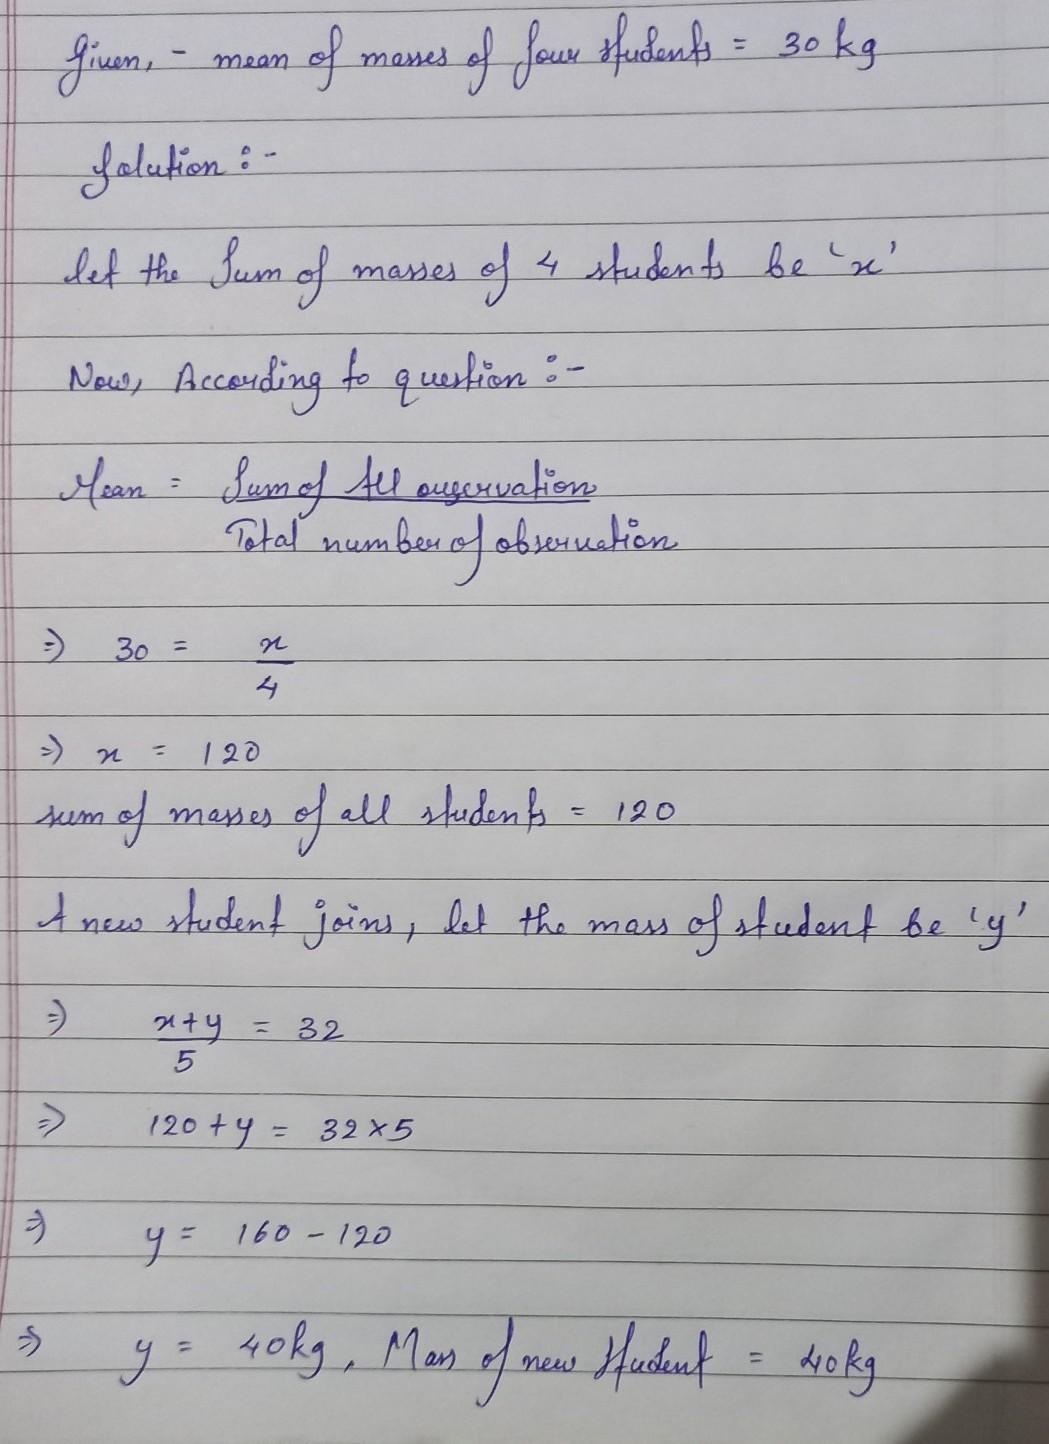 Given, - mean of masses of four students = 30 kg
Solution :-
let the Sum of masses of 4 students be 'x'
Now, According to question :-
Mean = Sum of All ovservation
Total number of observation
⇒ 30 = x
4
⇒ x = 120
sum of masses of all students = 120
A new student joins, let the mass of student be 'y'
⇒ x+y = 32
5
⇒ 120 + y = 32 × 5
⇒ y = 160 - 120
⇒ y = 40kg, Mass of new student = 40kg